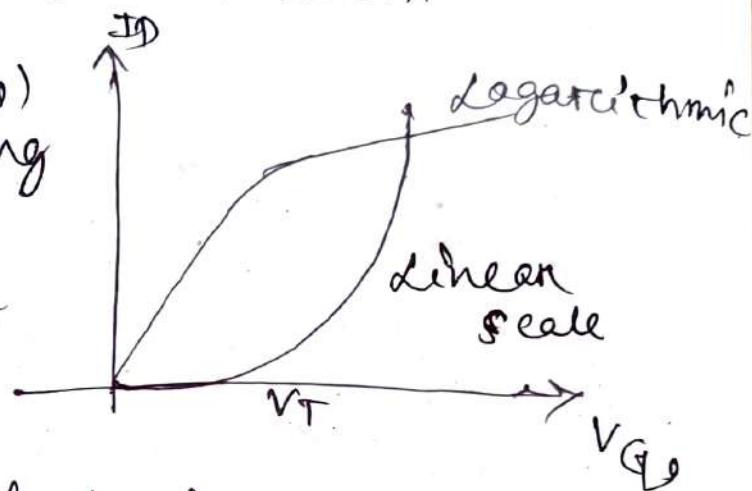 ID
)
ng
Logarithmic
Linear
scale
VT
VG